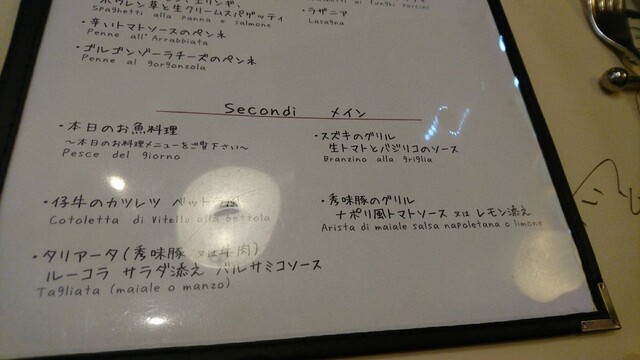 ホウレン草と生クリームスパゲッティ
Spaghetti alla panna e salmone
・辛いトマトソースのペンネ
Penne all'Arrabbiata
・ゴルゴンゾーラチーズのペンネ
Penne al gorgonzola
funghi porcini
・ラザニア
Lasagna
Secondi メイン
・本日のお魚料理
～本日のお料理メニューをご覧下さい～
Pesce del giorno
・仔牛のカツレツ
Cotoletta di Vitello alla bettola
・タリアータ(秀味豚 又は牛肉)
ルーコラ サラダ添え バルサミコソース
Tagliata (maiale o manzo)
・スズキのグリル
生トマトとバジリコのソース
Branzino alla griglia
・秀味豚のグリル
ナポリ風トマトソース 又は レモン添え
Arista di maiale salsa napoletana o limone